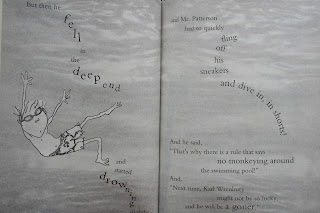 But then he
fell
in
the
deep end
and
started
drowning
and Mr. Patterson
had to quickly
fling
off
his
sneakers
and dive in, in shorts!
And he said,
"That's why there is a rule that says
no monkeying around
the swimming pool!"
And,
"Next time, Karl Wendney
might not be so lucky,
and he will be a goner"